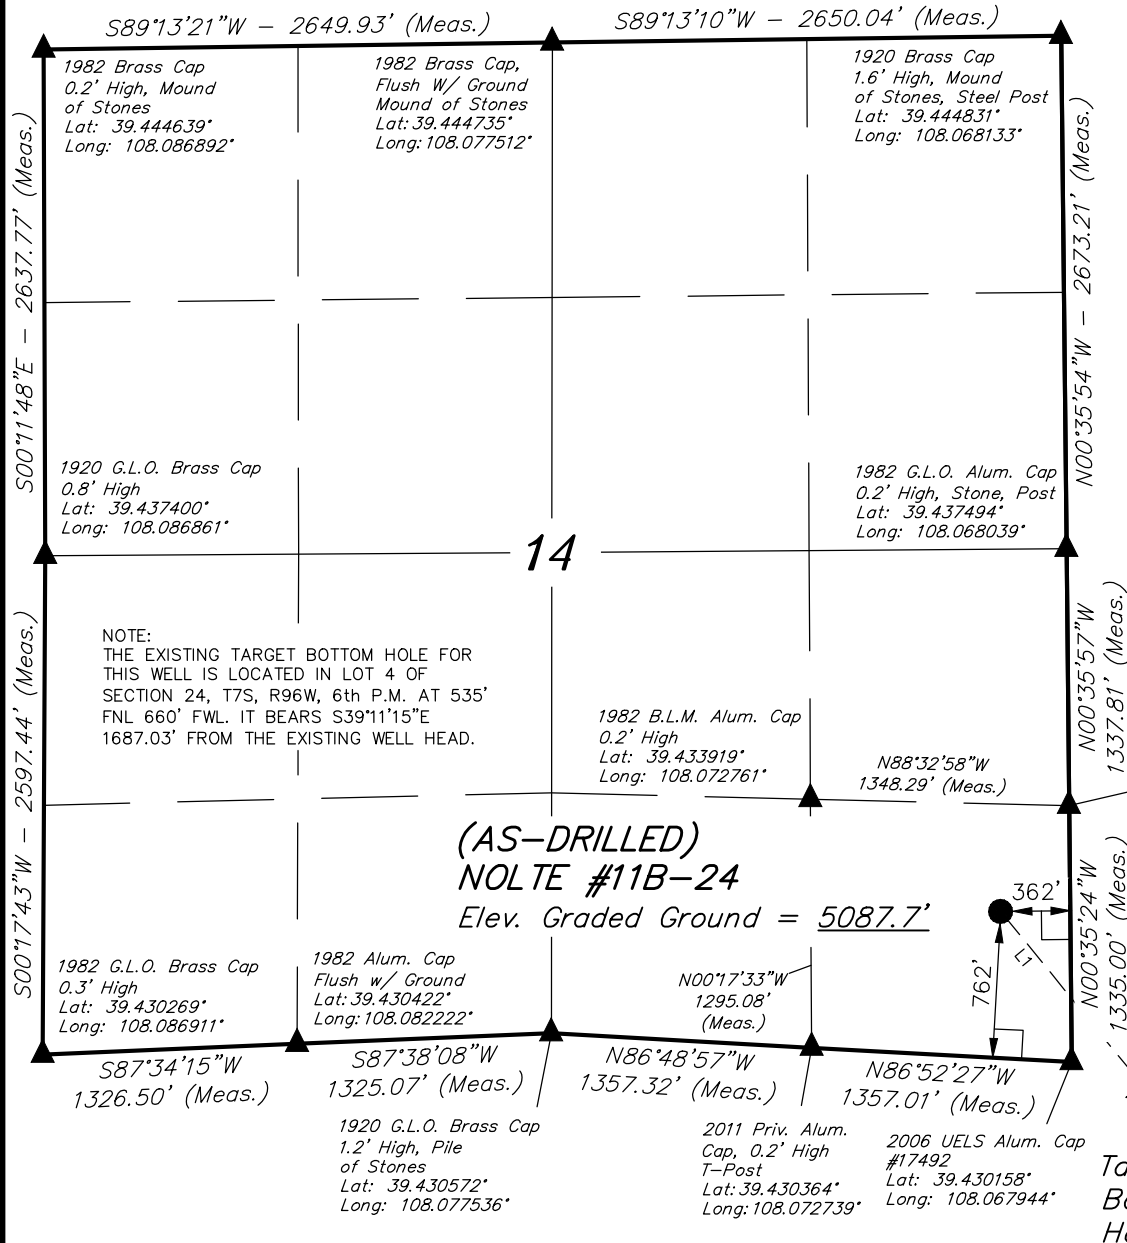 S89°13'21"W - 2649.93' (Meas.)
S89°13'10"W - 2650.04' (Meas.)
1982 Brass Cap
0.2' High, Mound
of Stones
Lat: 39.444639°
Long: 108.086892°
1982 Brass Cap,
Flush W/ Ground
Mound of Stones
Lat: 39.444735°
Long: 108.077512°
1920 Brass Cap
1.6' High, Mound
of Stones, Steel Post
Lat: 39.444831°
Long: 108.068133°
S00°11'48"E - 2637.77' (Meas.)
N00°35'54"W - 2673.21' (Meas.)
1920 G.L.O. Brass Cap
0.8' High
Lat: 39.437400°
Long: 108.086861°
1982 G.L.O. Alum. Cap
0.2' High, Stone, Post
Lat: 39.437494°
Long: 108.068039°
14
NOTE:
THE EXISTING TARGET BOTTOM HOLE FOR
THIS WELL IS LOCATED IN LOT 4 OF
SECTION 24, T7S, R96W, 6th P.M. AT 535'
FNL 660' FWL. IT BEARS S39°11'15"E
1687.03' FROM THE EXISTING WELL HEAD.
S00°17'43"W - 2597.44' (Meas.)
N00°35'57"W
1337.81' (Meas.)
1982 B.L.M. Alum. Cap
0.2' High
Lat: 39.433919°
Long: 108.072761°
N88°32'58"W
1348.29' (Meas.)
(AS-DRILLED)
NOLTE #11B-24
Elev. Graded Ground = 5087.7'
362'
762'
L1
N00°35'24"W
1335.00' (Meas.)
1982 G.L.O. Brass Cap
0.3' High
Lat: 39.430269°
Long: 108.086911°
1982 Alum. Cap
Flush w/ Ground
Lat: 39.430422°
Long: 108.082222°
N00°17'33"W
1295.08'
(Meas.)
S87°34'15"W
1326.50' (Meas.)
S87°38'08"W
1325.07' (Meas.)
N86°48'57"W
1357.32' (Meas.)
N86°52'27"W
1357.01' (Meas.)
1920 G.L.O. Brass Cap
1.2' High, Pile
of Stones
Lat: 39.430572°
Long: 108.077536°
2011 Priv. Alum.
Cap, 0.2' High
T-Post
Lat: 39.430364°
Long: 108.072739°
2006 UELS Alum. Cap
#17492
Lat: 39.430158°
Long: 108.067944°